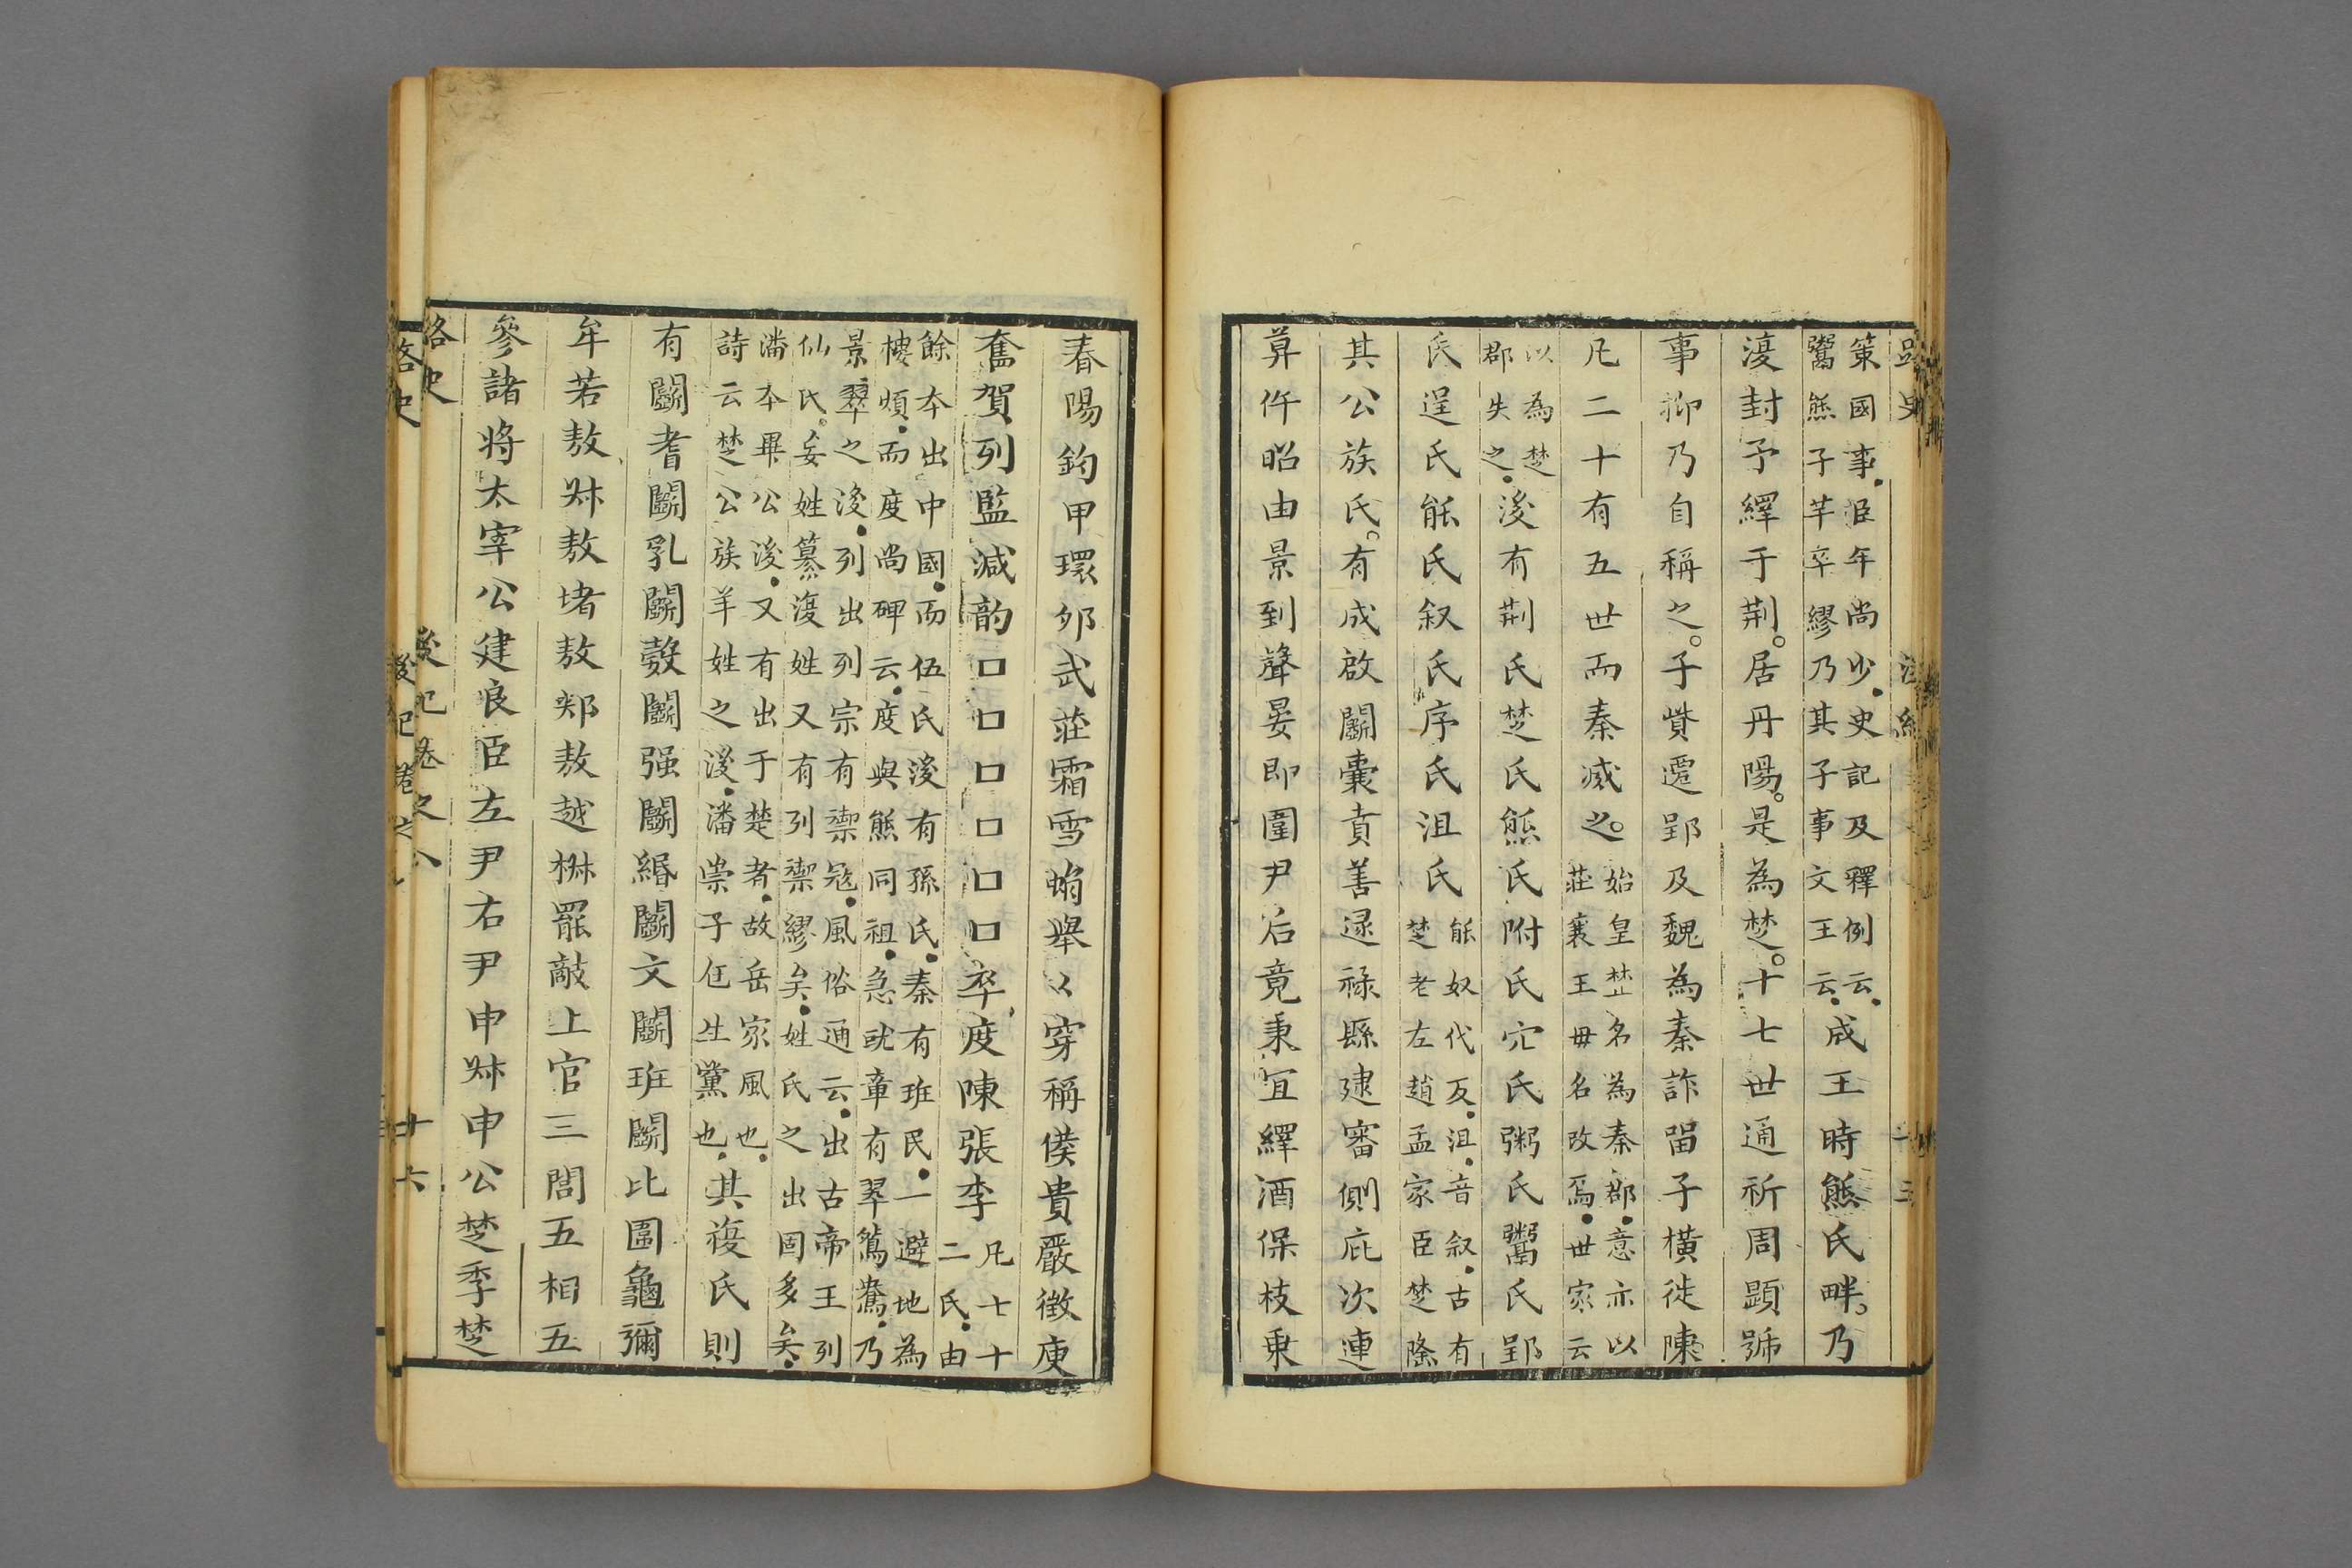 策國事臣年尚少史記及釋例云
鬻熊子芉卒繆乃其子事文王云成王時熊氏畔乃
復封予繹于荆居丹陽是為楚十七世通祈周顕號
事抑乃自稱之子貲遷郢及魏為秦詐畱子橫徙陳
凡二十有五世而秦滅之始皇楚名為秦郡意亦以
莊襄王毋名改焉世家云
以為楚
郡失之後有荆氏楚氏熊氏附氏穴氏粥氏鬻氏郢
氏逞氏能氏叙氏序氏沮氏能奴代反沮音叙古有
楚老左趙孟家臣楚隆
其公族氏有成啟鬭囊賁善逯祿縣建審側庇次連
算仵昭由景到聲晏即圍尹后竟秉宜繹酒保枝乗
春陽鈞甲環邜武莊霜雪蛸舉〻穿稱僕貴嚴徵庾
奮賀列監減韵口口口口口口卒度陳張李凡七十
二氏由
餘本出中國而伍氏後有孫氏秦有班民一避地為
樓煩而度尚碑云度與熊同祖急就章有翠鴛鴦乃
景翠之後列出列宗有禦冦風俗通云出古帝王列
仙氏妄姓纂復姓又有列禦繆矣姓氏之出固多矣
潘本畢公後又有出于楚者故岳家風也
詩云楚公族羊姓之後潘崇子尫生黨也其複氏則
有鬭耆鬭乳鬭彀鬭强鬭緡鬭文鬭班鬭比圍龜彌
牟若敖㚘敖堵敖郟敖越椒罷敵上官三閭五相五
參諸將太宰公建良臣左尹右尹申㚘申公楚季楚
路史 後紀卷之八 廿六